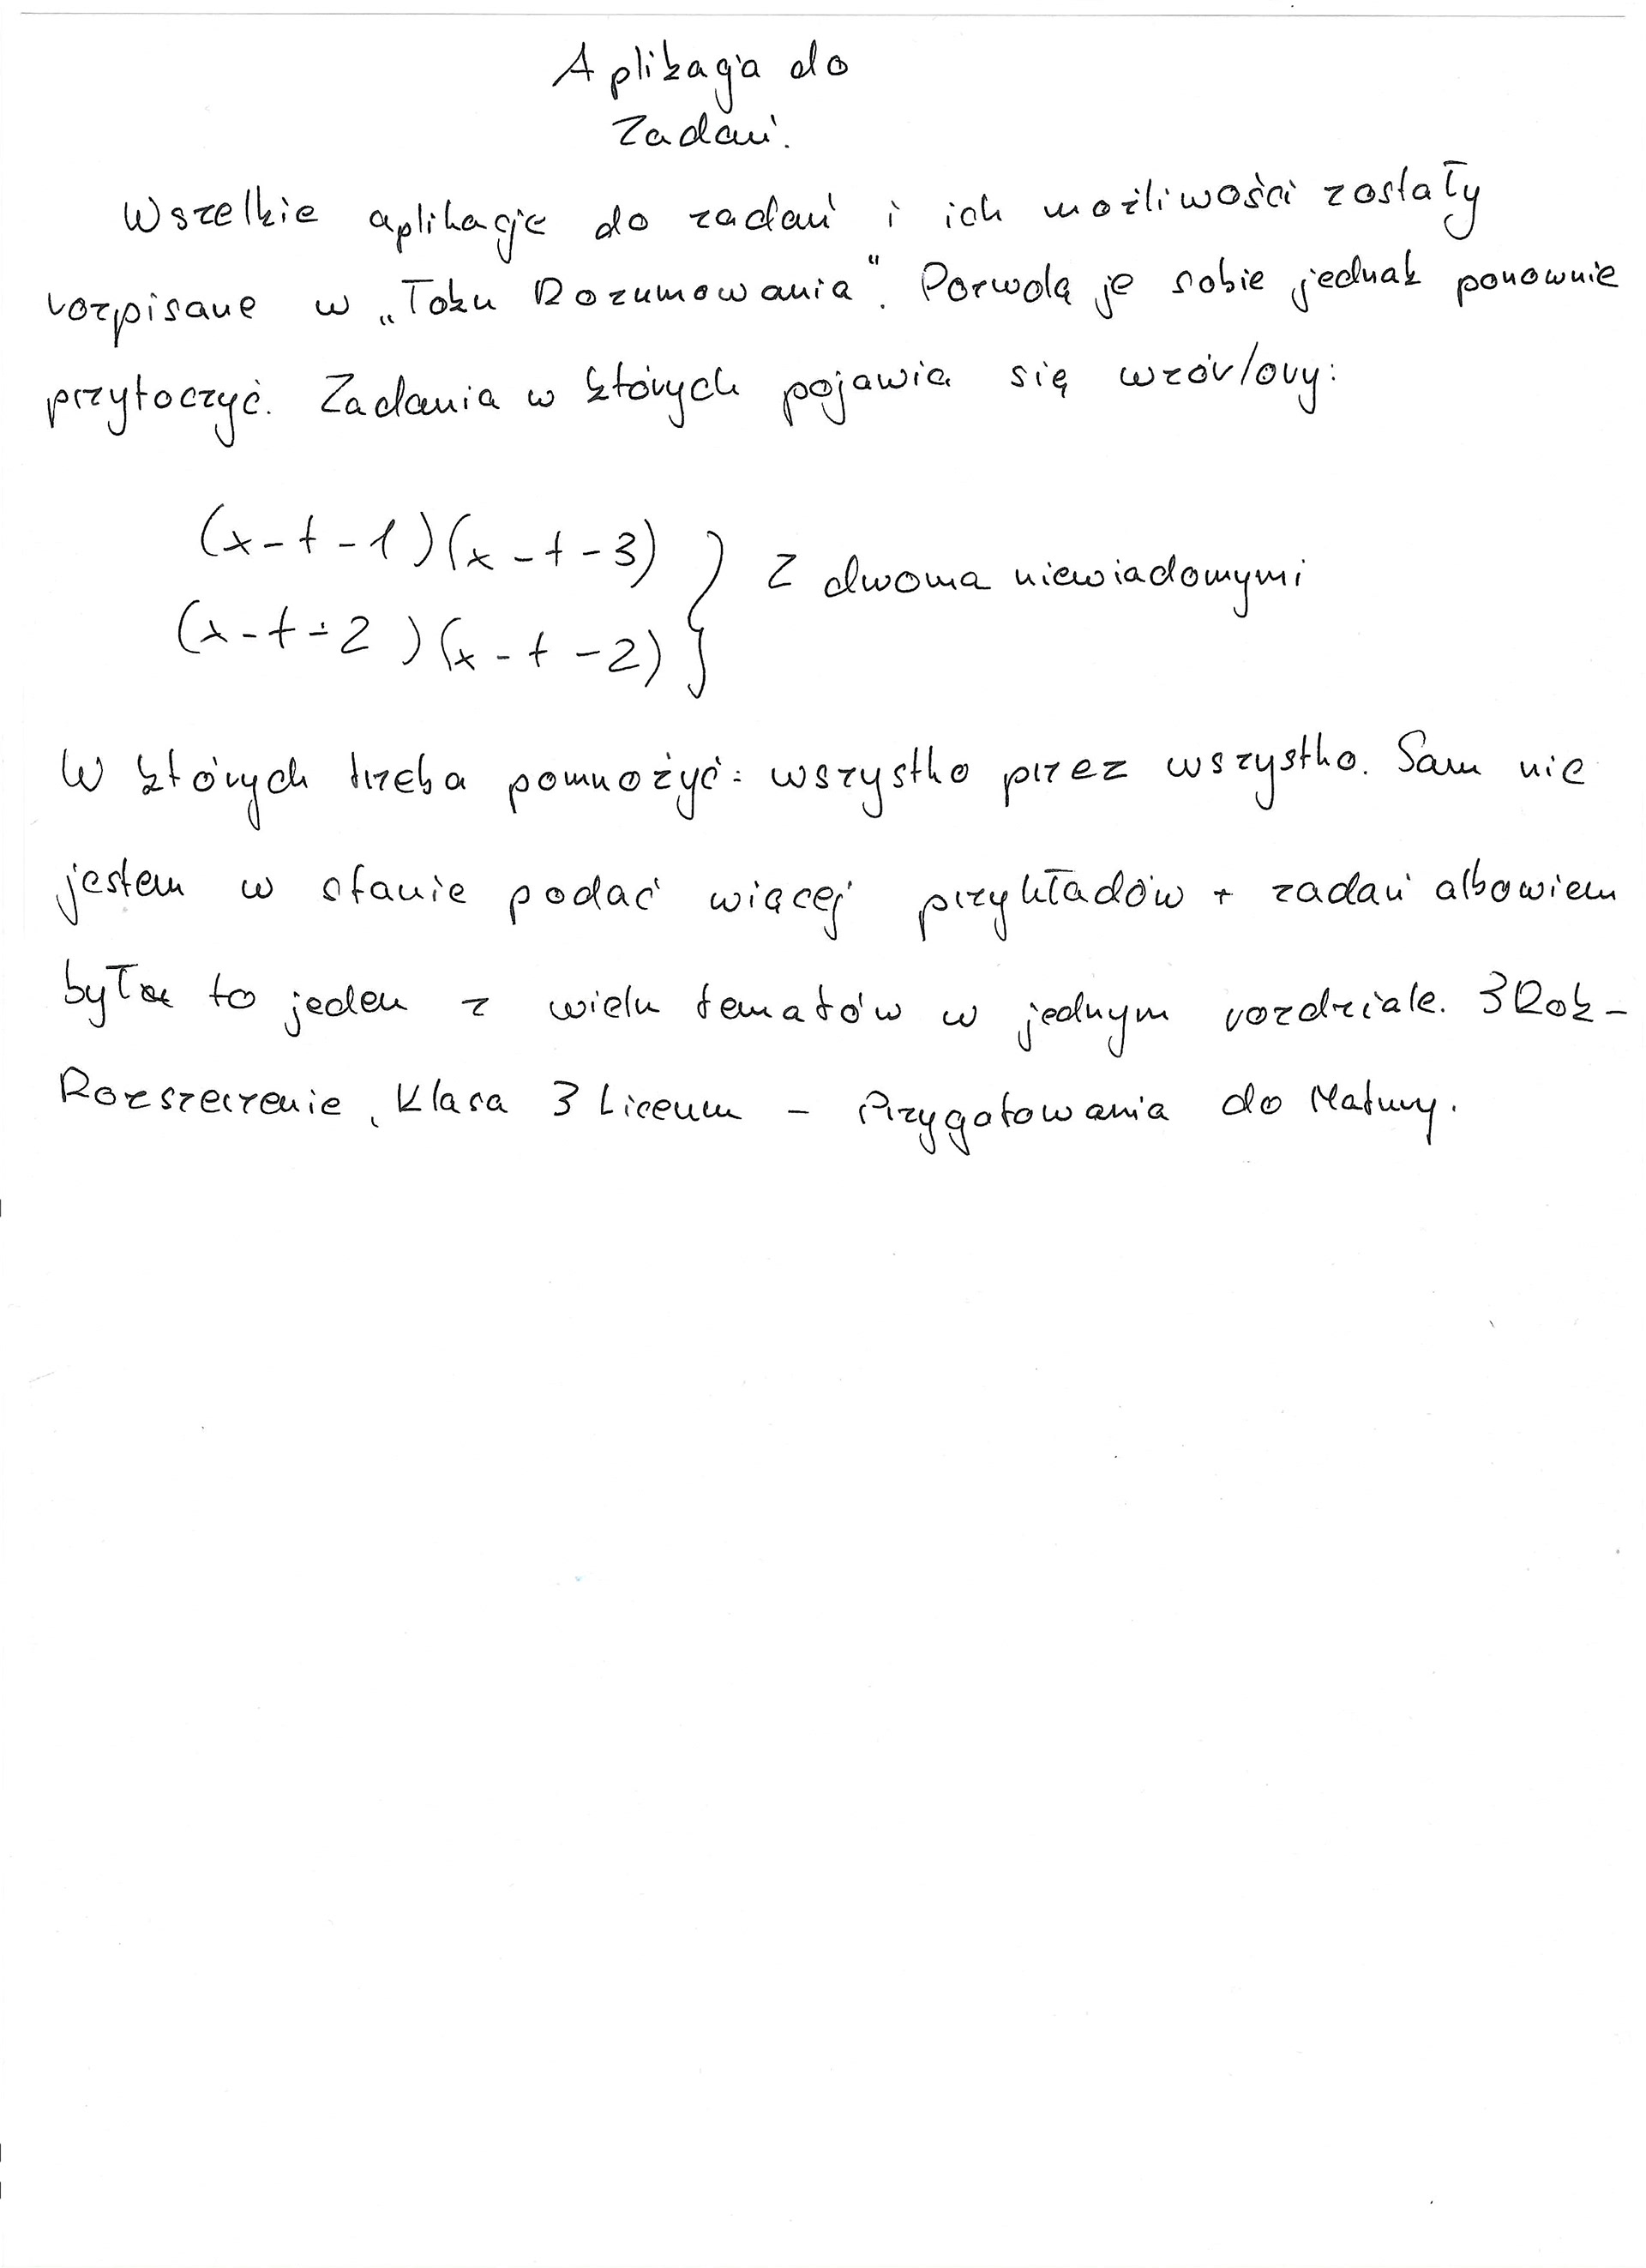 Aplikacja do
Zadań.
Wszelkie aplikacje do zadań i ich możliwości zostały
rozpisane w „Toku Rozumowania”. Pozwolą je sobie jednak ponownie
przytoczyć. Zadania w których pojawia się wzór/ory:
(x-t-1)(x-t-3)
(x-t-2)(x-t-2) } z dwoma niewiadomymi
W których trzeba pomnożyć: wszystko przez wszystko. Sam nie
jestem w stanie podać więcej przykładów + zadań albowiem
był to jeden z wielu tematów w jednym rozdziale. 3 Rok -
Rozszerzenie, Klasa 3 Liceum - Przygotowania do Matury.